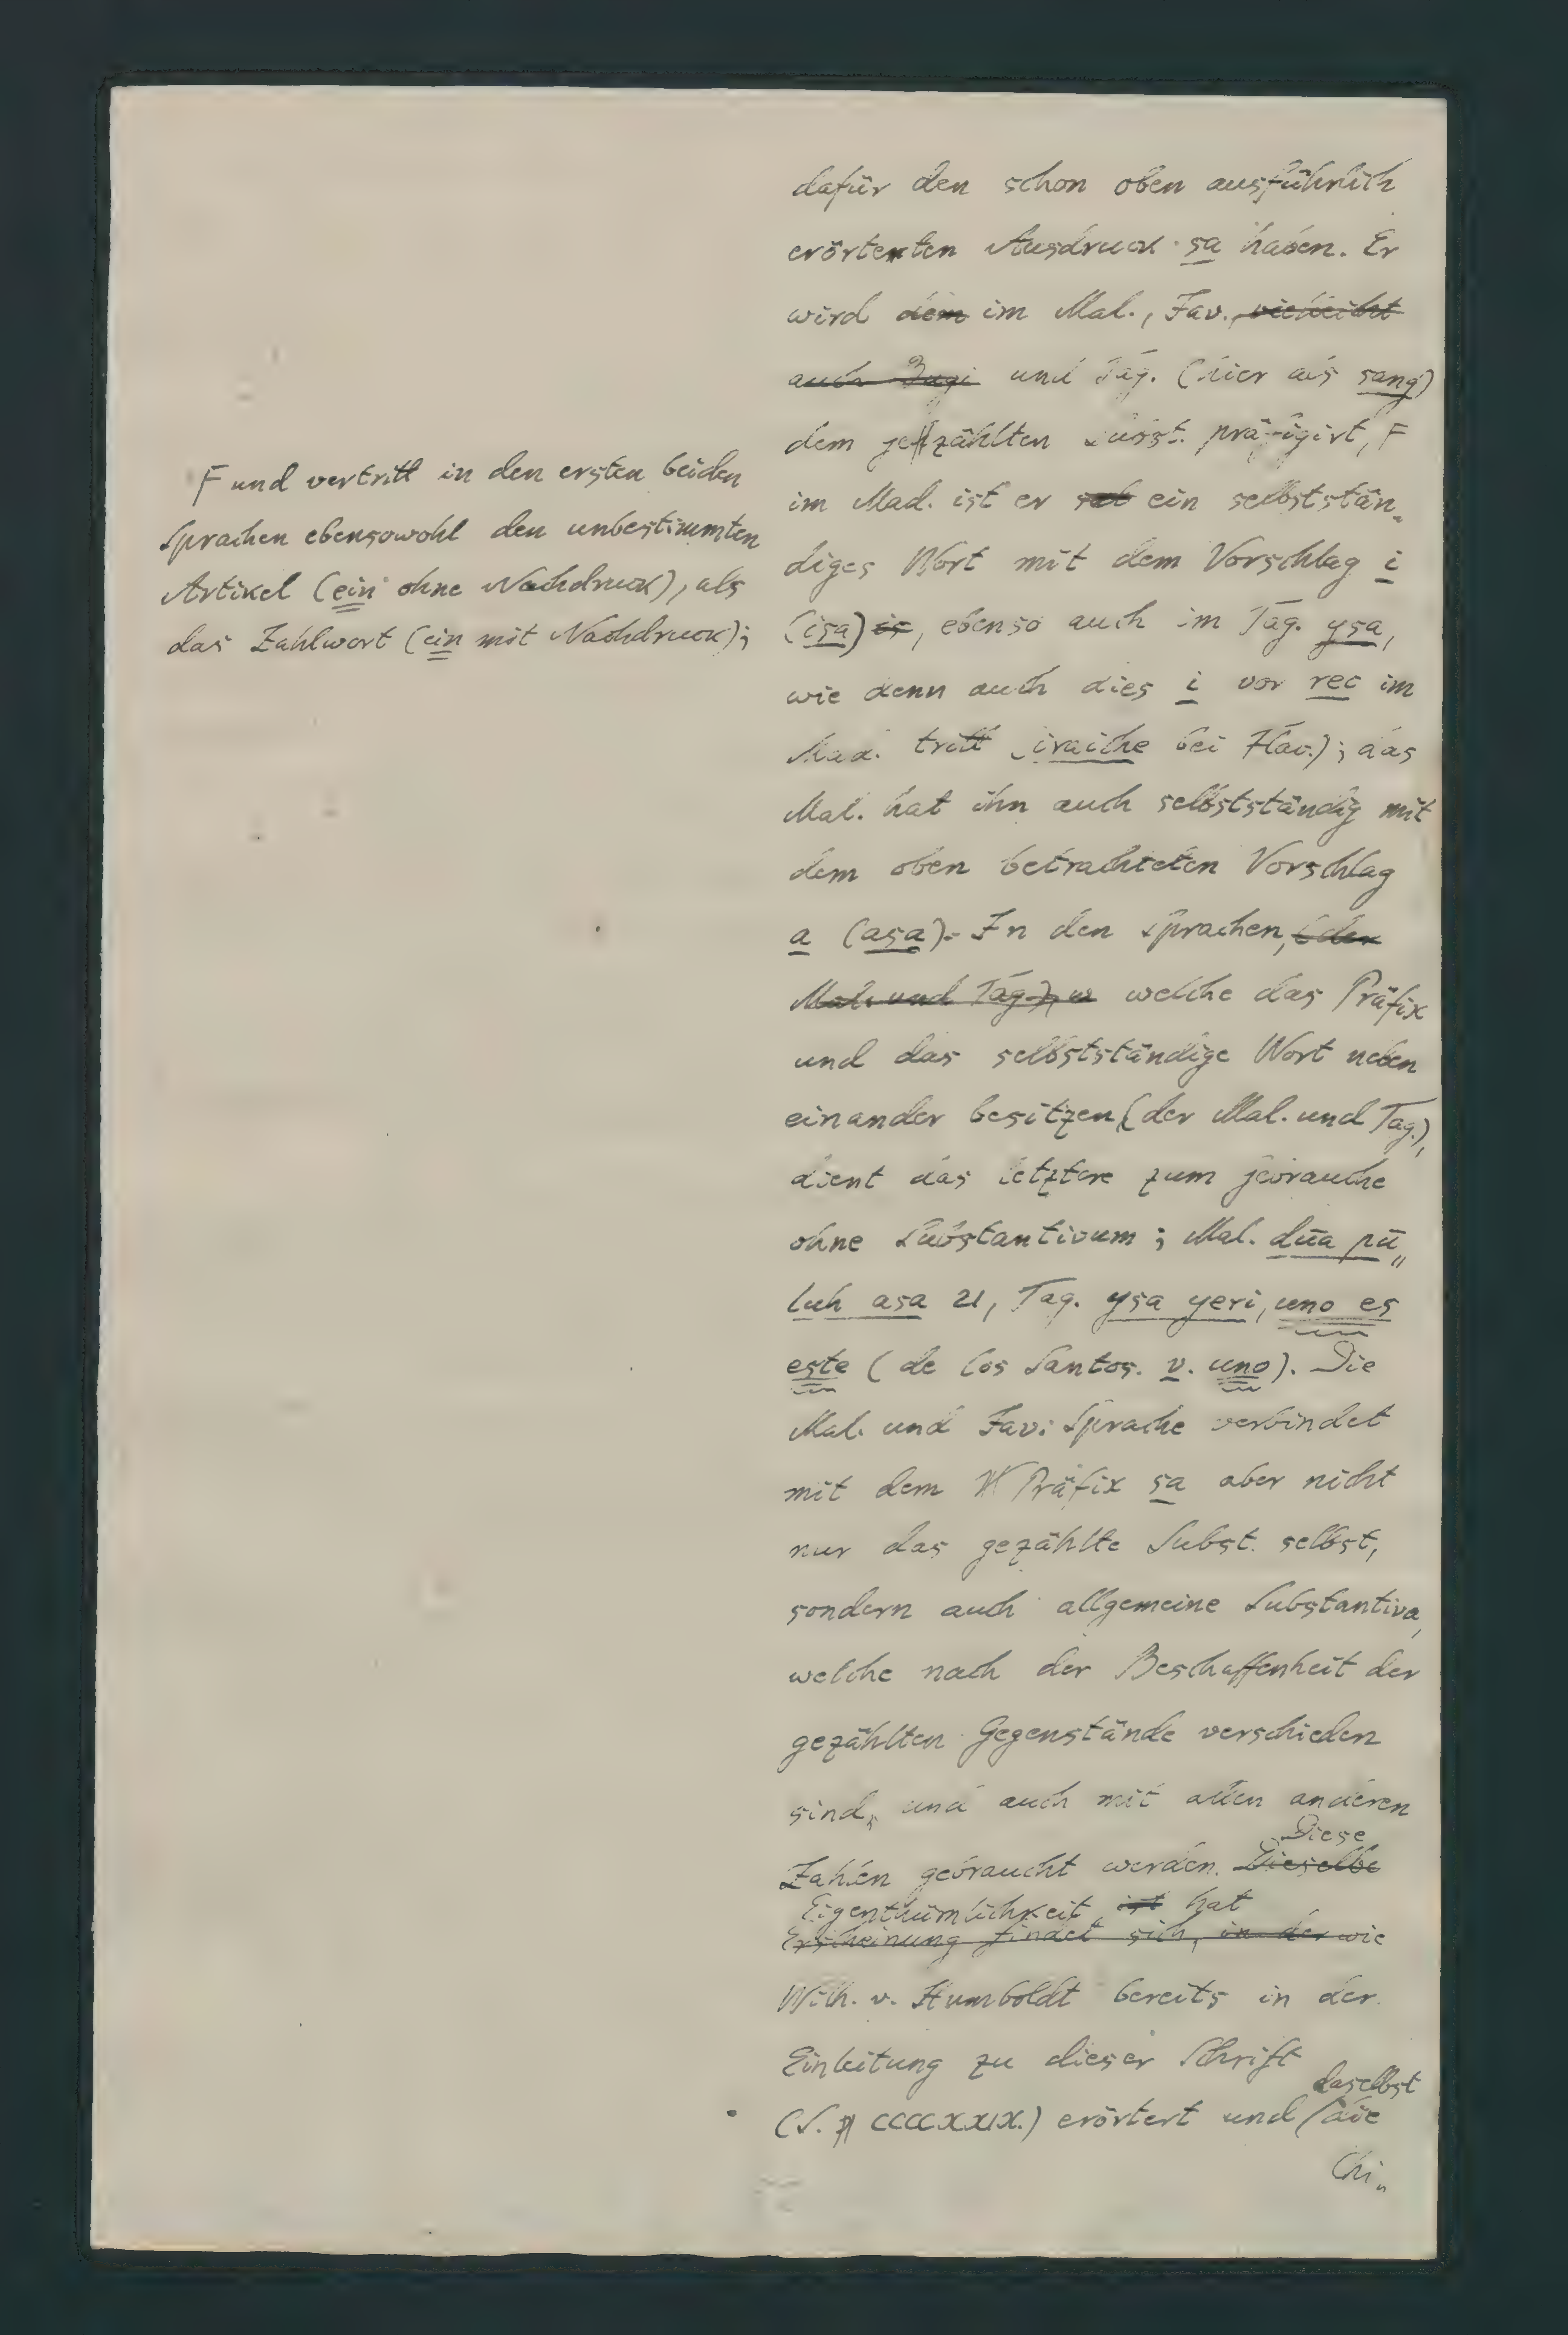 dafür den schon oben ausführlich
erörterten Ausdruck sa haben. Er
wird dem im Mal., Jav., vielleicht
auch Bugi und Tag. (hier als sang)
dem gezählten Subst. präfigirt, F
F und vertritt in den ersten beiden
Sprachen ebensowohl den unbestimmten
Artikel (ein ohne Nachdruck), als
das Zahlwort (ein mit Nachdruck);
im Mad. ist er ein selbststän„
diges Wort mit dem Vorschlag i
(isa) is, ebenso auch im Tag. ysa,
wie denn auch dies i vor rec im
Mad. tritt (iraiche bei Flac.); das
Mal. hat ihn auch selbstständig mit
dem oben betrachteten Vorschlag
a (asa). In den Sprachen, (der
Mal. und Tag.), w welche das Präfix
und das selbstständige Wort neben
einander besitzen (der Mal. und Tag.),
dient das letztere zum Gebrauche
ohne Substantivum; Mal. dūa pū„
luh asa 21, Tag. ysa yeri, uno es
este (de los Santos. v. uno). Die
Mal. und Jav. Sprache verbindet
mit dem W Präfix sa aber nicht
nur das gezählte Subst. selbst,
sondern auch allgemeine Substantiva,
welche nach der Beschaffenheit der
gezählten Gegenstände verschieden
sind, und auch mit allen anderen
Diese
Zahlen gebraucht werden. Dieselbe
Eigenthümlichkeit ist hat
Erscheinung findet sich, in der wie
Wilh. v. Humboldt bereits in der
Einleitung zu dieser Schrift
daselbst
(S. CCCCXXIX.) erörtert und die
Chi„